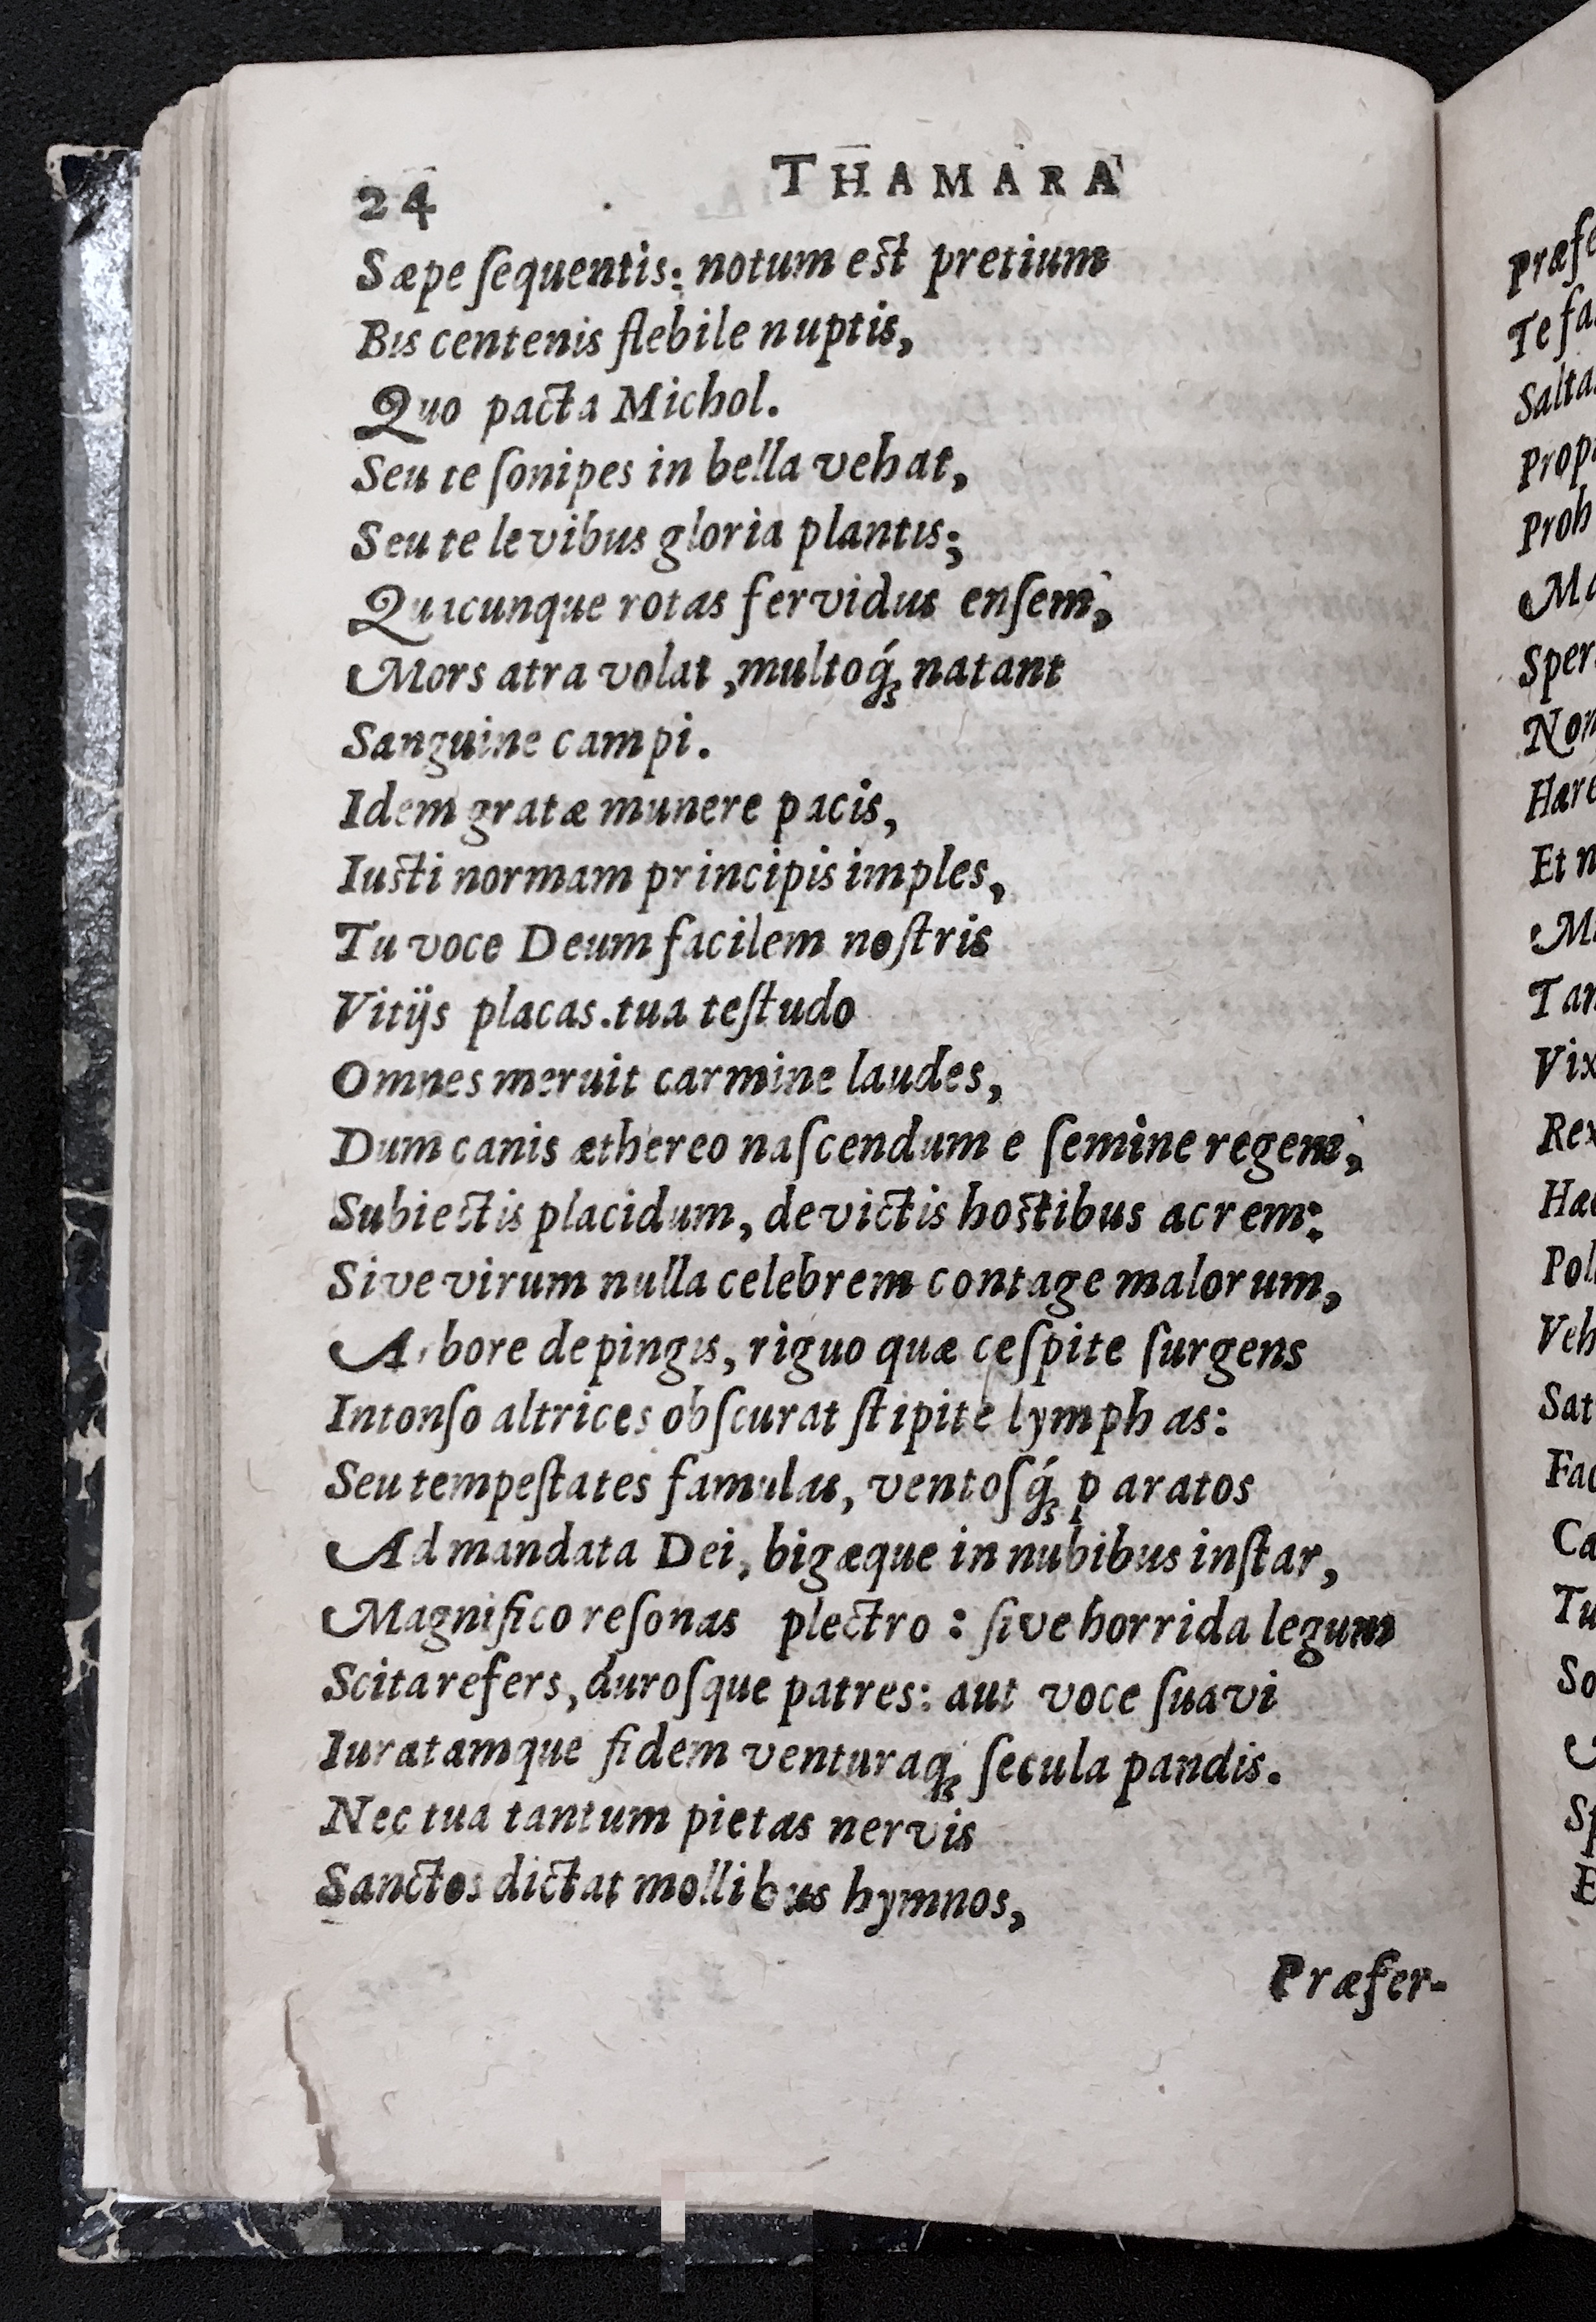 24 THAMARA
Sæpe ſequentis: notum est pretium
Bis centenis flebile nuptis,
Quo pacta Michol.
Seu te ſonipes in bella vehat,
Seu te levibus gloria plantis;
Quicunque rotas fervidus enſem,
Mors atra volat, multoq́; natant
Sanguine campi.
Idem gratæ munere pacis,
Iusti normam principis imples,
Tu voce Deum facilem noſtris
Vitijs placas. tua teſtudo
Omnes meruit carmine laudes,
Dum canis æthereo naſcendum e ſemine regem,
Subiectis placidum, devictis hostibus acrem:
Sive virum nulla celebrem contage malorum,
Arbore depingis, riguo quæ ceſpite ſurgens
Intonſo altrices obſcurat ſtipite lymphas:
Seu tempeſtates famulas, ventoſq́; paratos
Ad mandata Dei, bigæque in nubibus inſtar,
Magnifico reſonas plectro: ſive horrida legum
Scita refers, duroſque patres: aut voce ſuavi
Iuratamque fidem venturaq; ſecula pandis.
Nec tua tantum pietas nervis
Sanctos dictat mollibus hymnos,
Præfer-
Te
Et